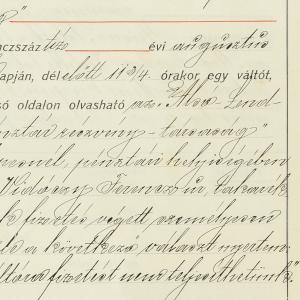 "
nczszáz tíz évi augusztus
apján, délelőtt 11 3/4 órakor egy váltót,
só oldalon olvasható az "Alsó Lend-
részvény-társaság"
pénztári helyiségében
Ferencz úr, takarék
k fizetés végett személyesen
a következő választ nyertem
fizetést nem teljesíthetünk."